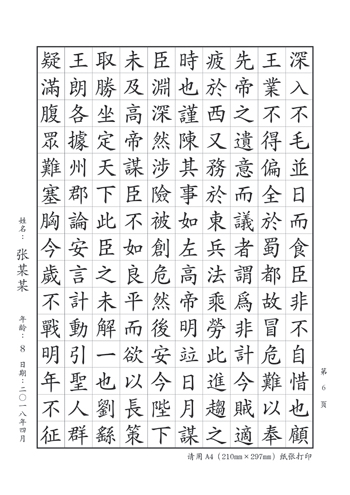 深入不毛並日而食臣非不自惜也顧
王業不得偏全於蜀都故冒危難以奉
先帝之遺意而議者謂爲非計今賊適
疲於西又務於東兵法乘勞此進趨之
時也謹陳其事如左高帝明竝日月謀
臣淵深然涉險被創危然後安今陛下
未及高帝謀臣不如良平而欲以長策
取勝坐定天下此臣之未解一也劉繇
王朗各據州郡論安言計動引聖人群
疑滿腹眾難塞胸今歲不戰明年不征
姓名：张某某 年龄：8 日期：二〇一八年四月
第 6 页
请用A4（210mm×297mm）纸张打印